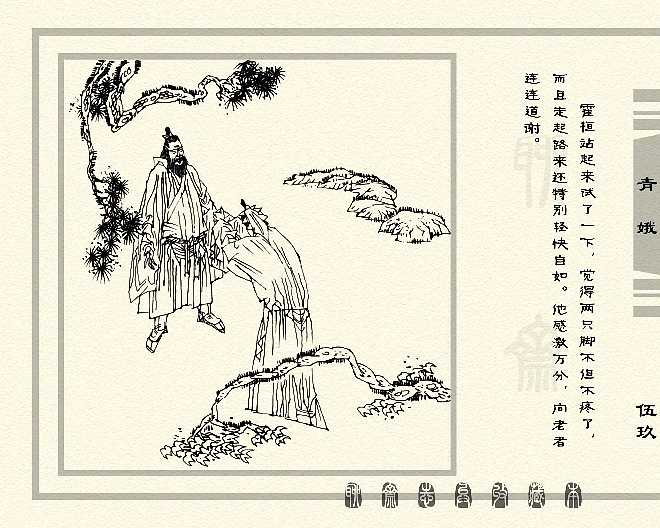 霍桓站起来试了一下，觉得两只脚不但不疼了，
而且走起路来还特别轻快自如。他感激万分，向老者
连连道谢。
青娥
伍玖